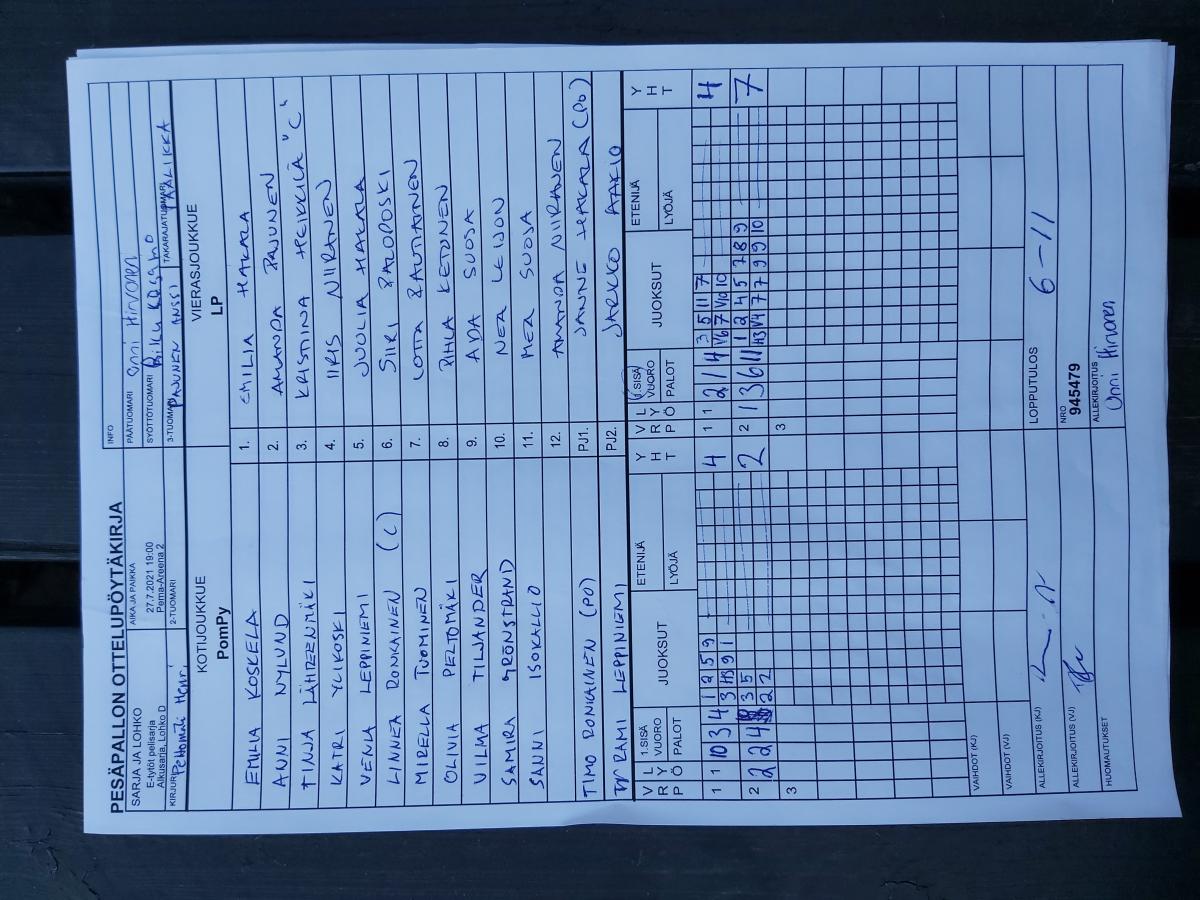 PESÄPALLON OTTELUPÖYTÄKIRJA
SARJA JA LOHKO
E-tytöt pelisarja
Alkusarja, Lohko D
AIKA JA PAIKKA
27.7.2021 19:00
Pema-Areena 2
INFO
PÄÄTUOMARI Onni Hirvonen
SYÖTTÖTUOMARI
KIRJURI Peltomäki Henri
2-TUOMARI
3-TUOMARI PAJUNEN ANSSI
TAKARAJATUOMARI
KOTIJOUKKUE
PomPy
VIERASJOUKKUE
LP
EMILIA KOSKELA 1. EMILIA HAKALA
ANNI NYLUND 2. AMANDA PAJUNEN
TINJA LÄHTEENMÄKI 3. KRISTIINA HEIKKILÄ "C"
KATRI YLIKOSKI 4. IIRIS NIIRANEN
VENLA LEPPINIEMI 5. JUOLIA HAKALA
LINNEA RONKAINEN (C) 6. SIIRI PALOPOSKI
MIRELLA TUOMINEN 7. LOTTA RAUTIAINEN
OLIVIA PELTOMÄKI 8. PIHLA KETONEN
VILMA TILJANDER 9. ADA SUOSA
SAMIRA GRÖNSTRAND 10. NEA LEIJON
SANNI ISOKALLIO 11. MEA SUOSA
12. AMANDA NIIRANEN
TIMO RONKAINEN (PO) PJ1. JANNE HAKALA (PO)
RAMI LEPPINIEMI PJ2. JARKKO AAKIO
V R P L Y Ö 1.SISÄ VUORO PALOT JUOKSUT ETENIJÄ LYÖJÄ Y H T
V R P L Y Ö 1.SISÄ VUORO PALOT JUOKSUT ETENIJÄ LYÖJÄ Y H T
1 1 10 3 4 1 2 5 9 4
3 H3 9 1
1 1 2 1 4 3 5 11 7 4
V6 7 V10 10
2 2 2 4 3 5 2
2 2
2 1 3 6 11 1 2 4 5 7 8 9 7
H3 V4 7 7 9 9 10
3
3
VAIHDOT (KJ)
VAIHDOT (VJ)
ALLEKIRJOITUS (KJ)
LOPPUTULOS 6-11
ALLEKIRJOITUS (VJ)
NRO
945479
HUOMAUTUKSET
ALLEKIRJOITUS
Onni Hirvonen